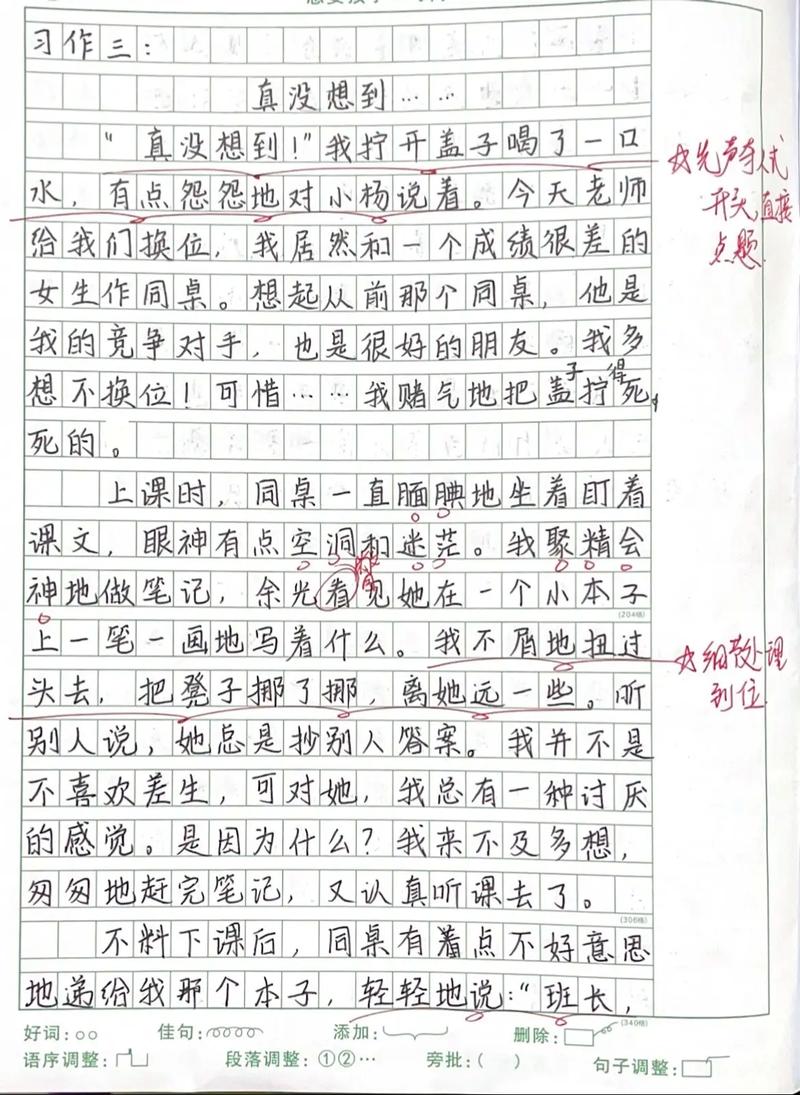 习作三：
真没想到……
“真没想到！”我拧开盖子喝了一口
水，有点怨怨地对小杨说着。今天老师
给我们换位，我居然和一个成绩很差的
女生作同桌。想起从前那个同桌，他是
我的竞争对手，也是很好的朋友。我多
想不换位！可惜……我赌气地把盖子拧得死
死的。
上课时，同桌一直腼腆地坐着盯着
课文，眼神有点空洞和迷茫。我聚精会
神地做笔记，余光看见她在一个小本子
(204格)
上一笔一画地写着什么。我不屑地扭过
头去，把凳子挪了挪，离她远一些。听
别人说，她总是抄别人答案。我并不是
不喜欢差生，可对她，我总有一种讨厌
的感觉。是因为什么？我来不及多想，
匆匆地赶完笔记，又认真听课去了。
(306格)
不料下课后，同桌有着点不好意思
地递给我那个本子，轻轻地说：“班长，
(340格)
☆先声夺人式
开头直接
点题
☆细节处理
到位
好词：○○ 佳句： 添加： 删除：
语序调整： 段落调整：①②… 旁批：( ) 句子调整：